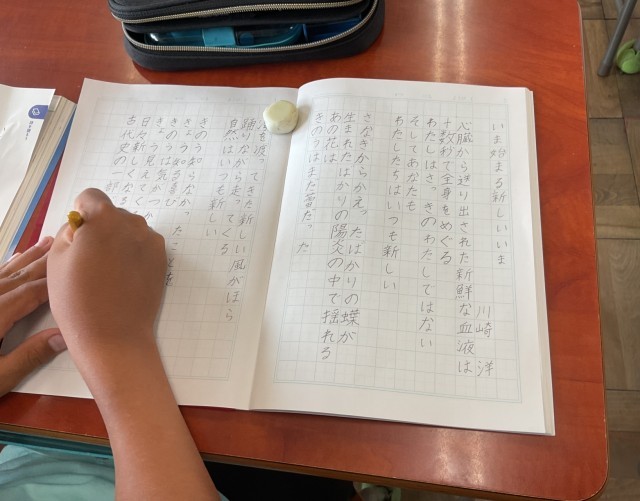 いま始まる新しいいま
川崎 洋
心臓から送り出された新鮮な血液は
十数秒で全身をめぐる
わたしはさっきのわたしではない
そしてあなたも
わたしたちはいつも新しい
さなぎからかえったばかりの蝶が
生まれたばかりの陽炎の中で揺れる
あの花は
きのうはまだ蕾だった
を渡ってきた新しい風がほら
踊りながら走ってくる
自然はいつも新しい
きのう知らなかったことを
きょう知る喜び
きのうは気がつか
きょう見えてく
日々新しくなる
古代史の一部